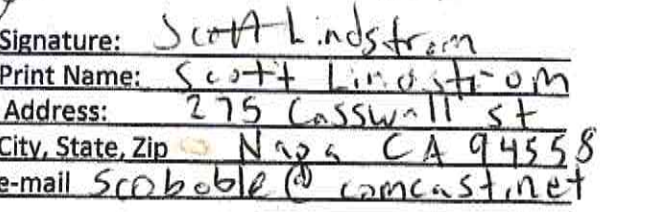 Signature: Scott Lindstrom
Print Name: Scott Lindstrom
Address: 275 Casswall St
City, State, Zip Napa CA 94558
e-mail Scoboble@comcast.net